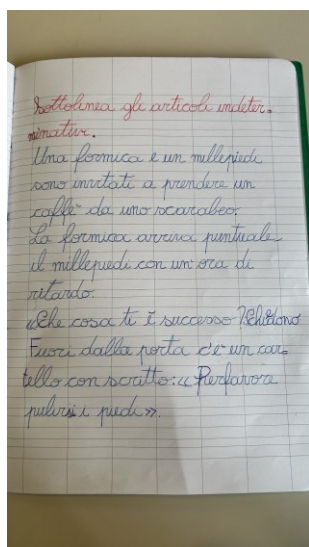 Sottolinea gli articoli indeter-
minativi.
Una formica e un millepiedi
sono invitati a prendere un
caffè da uno scarabeo.
La formica arriva puntuale
il millepiedi con un'ora di
ritardo.
«Che cosa ti è successo? Chidono
Fuori dalla porta c'è un car-
tello con scritto: «Perfavore
pulirsi i piedi».